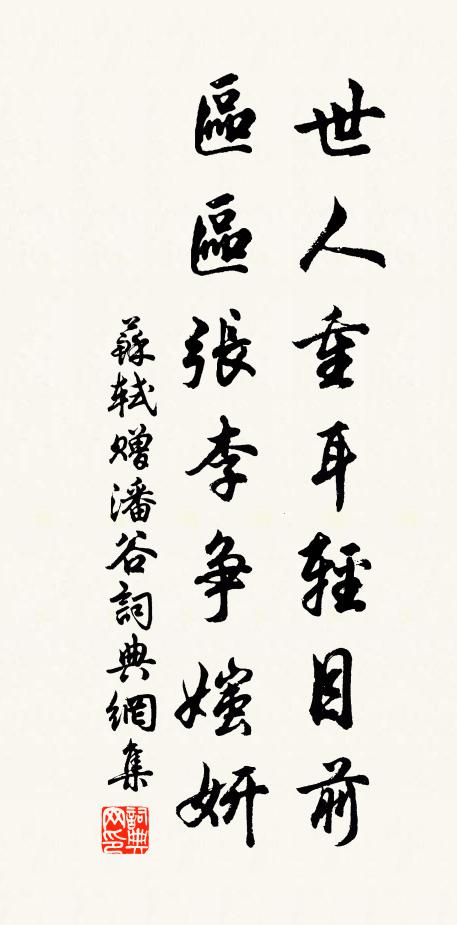 世人重耳輕目前
區區張李争媸妍
蘇軾贈潘谷詞典網集
詞典网印